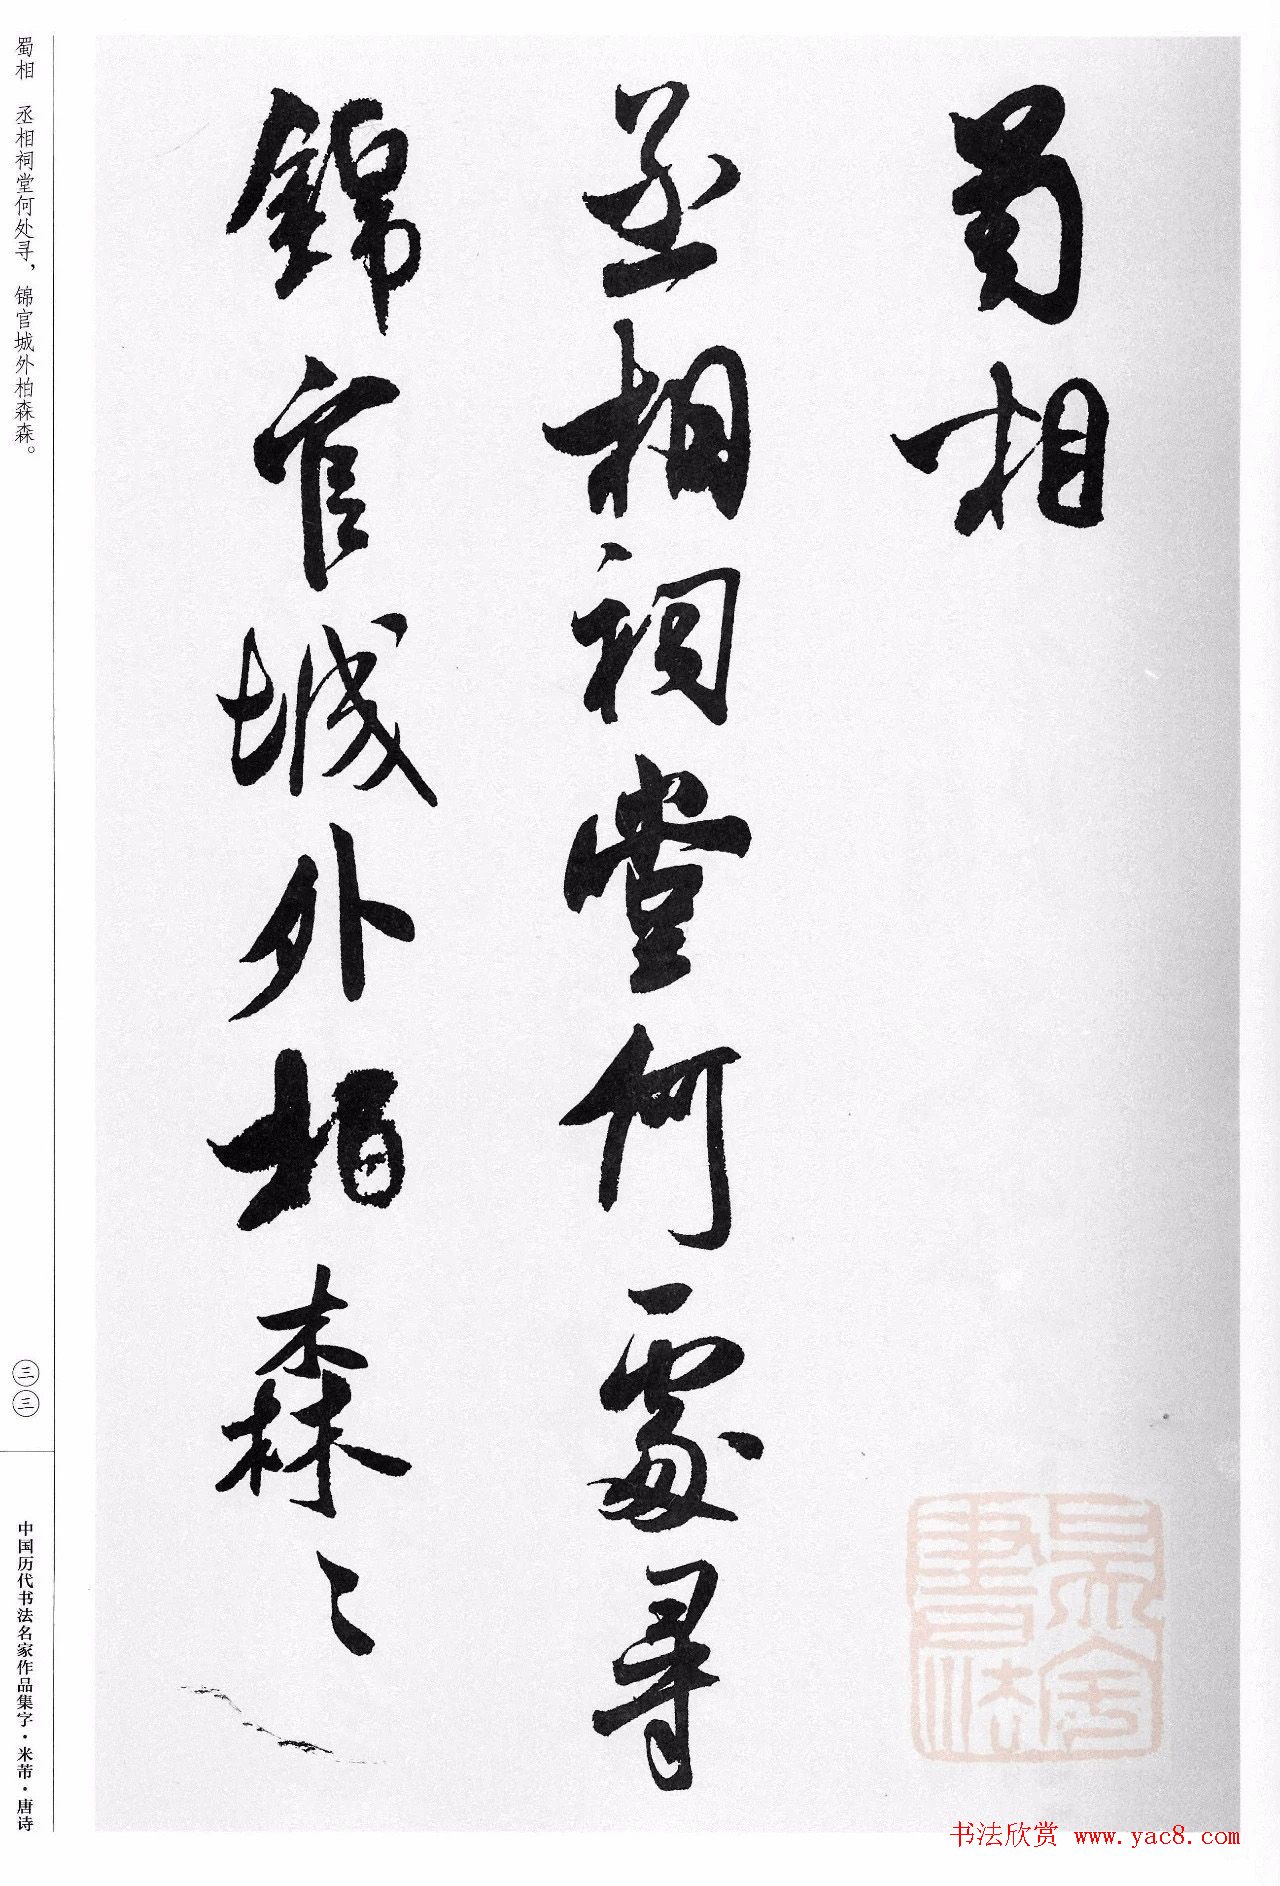 蜀相
丞相祠堂何處尋
錦官城外柏森〻
蜀相 丞相祠堂何处寻，锦官城外柏森森。
三三
中国历代书法名家作品集字·米芾·唐诗
書法
书法欣赏 www.yac8.com